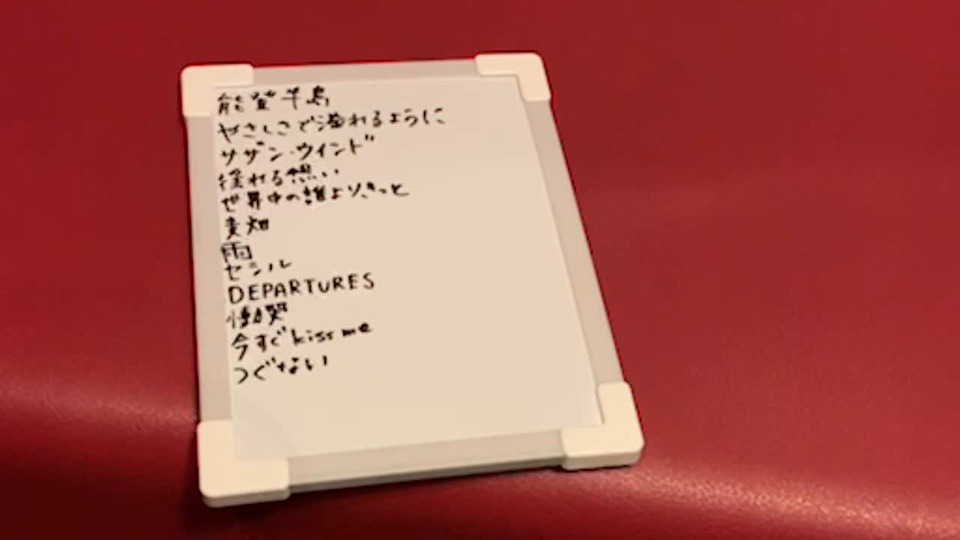 能登半島
やさしさで溢れるように
サザン・ウインド
揺れる想い
世界中の誰よりきっと
麦畑
雨
セシル
DEPARTURES
慟哭
今すぐkiss me
つぐない